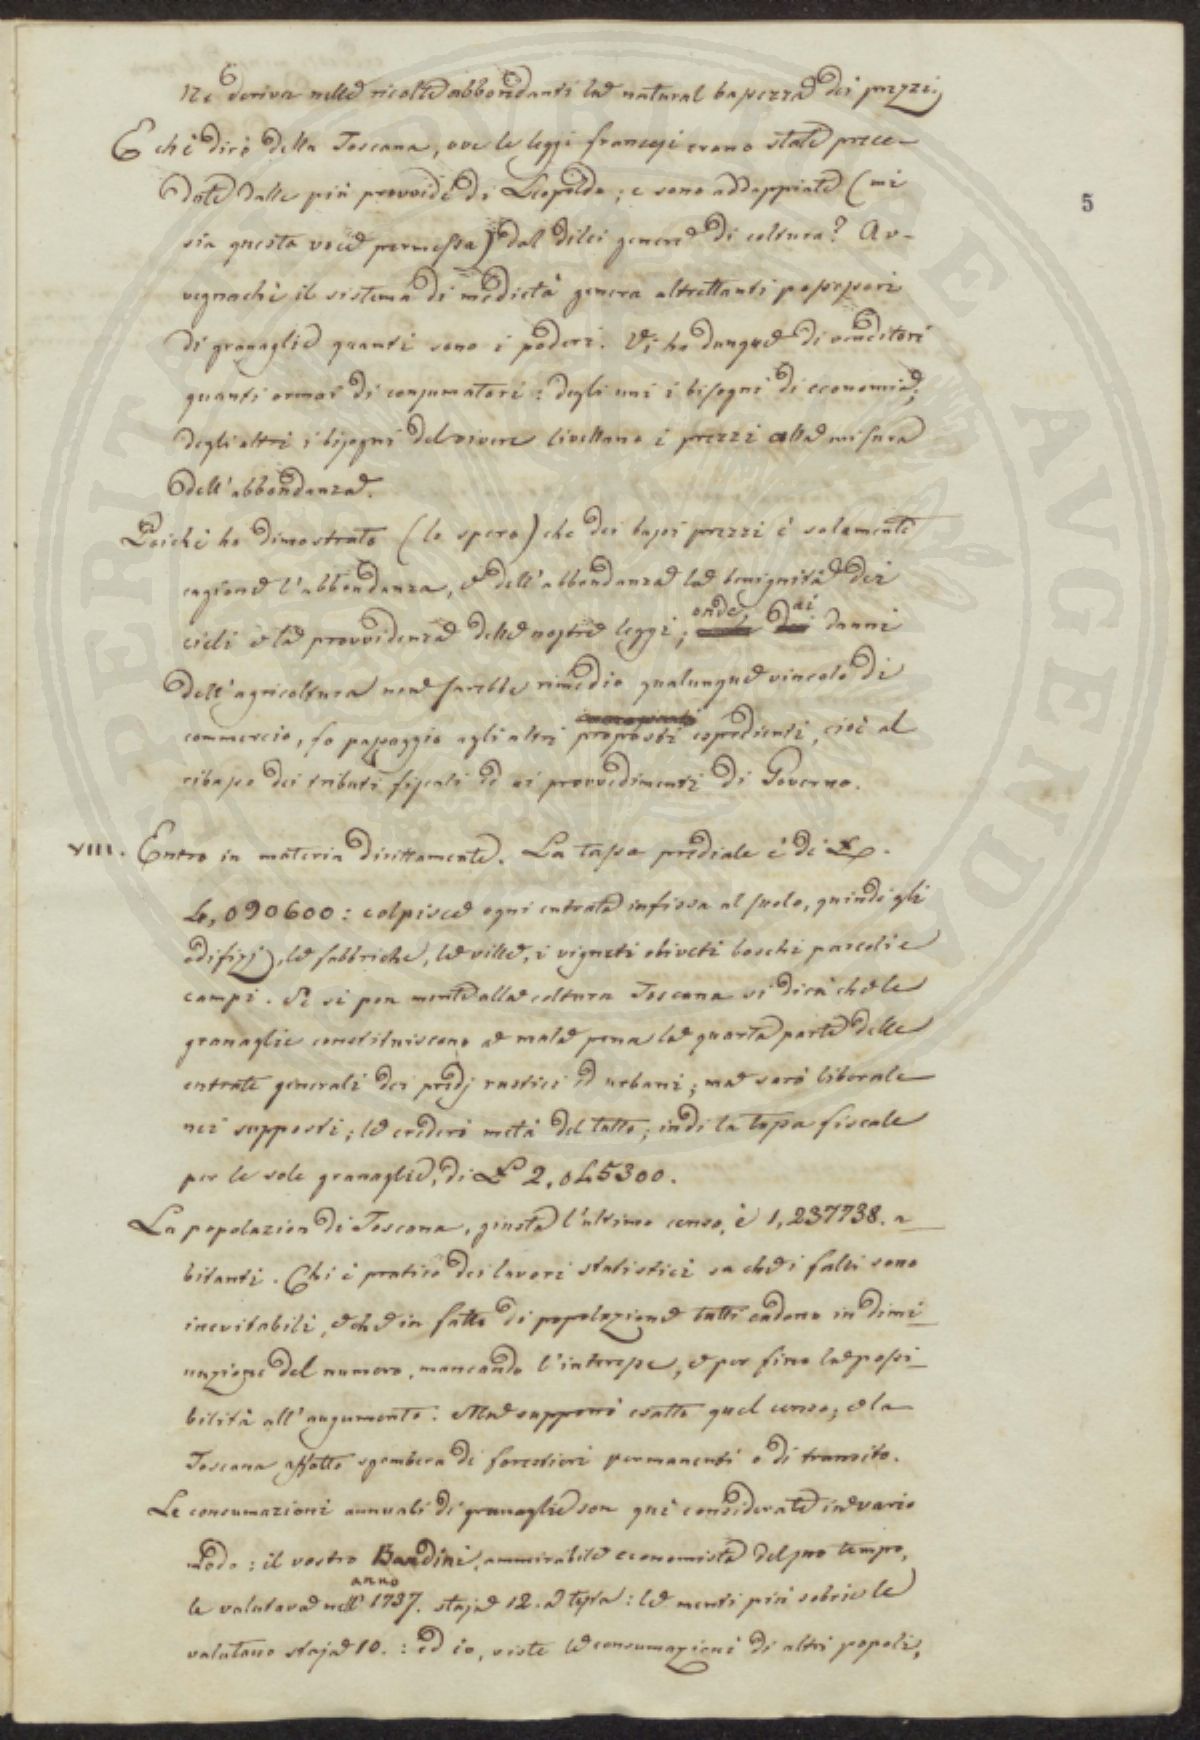 Ne deriva nelle ricolte abbondanti la natural bassezza dei prezzi;
E che dirò della Toscana, ove le leggi francesi erano state prece-
5
dute dalle più provvide di Leopoldo; e sono addoppiate (mi
sia questa voce permessa) dal di lei genere di coltura? Av-
vegnachè il sistema di medietà genera altrettanti possessori
di granaglie quanti sono i poderi. Vi ha dunque di venditori
quanti ormai di consumatori: degli uni i bisogni di economia,
degli altri i bisogni del vivere livellano i prezzi alla misura
dell'abbondanza.
Poichè ho dimostrato (lo spero) che dei bassi prezzi è solamente
cagione l'abbondanza, e dell'abbondanza la benignità dei
cieli e la provvidenza delle nostre leggi; onde, ai danni
dell'agricoltura non sarebbe rimedio qualunque vincolo di
commercio, fo passaggio agli altri proposti espedienti, cioè al
ribasso dei tributi fiscali ed ai provvedimenti di Governo.
VIII. Entro in materia dirittamente. La tassa prediale è di £.
4,090600: colpisce ogni entrata infissa al suolo, quindi gli
edifizj, le fabbriche, le ville, i vigneti oliveti boschi pascoli e
campi. Se si pon mente alla coltura Toscana si dirà che le
granaglie constituiscono a mala pena la quarta parte delle
entrate generali dei predj rustici ed urbani; ma sarò liberale
nei supposti; le crederò metà del tutto; indi la tassa fiscale
per le sole granaglie, di £ 2,045300.
La popolazion di Toscana, giusta l'ultimo censo, è 1,237738. a-
bitanti. Chi è pratico dei lavori statistici sa che i falli sono
inevitabili, e che in fatto di popolazione tutti cadono in dimi-
nuzione del numero, mancando l'interesse, e per fino la possi-
bilità all'augumento. Ma supponi esatto quel censo; e la
Toscana affatto sgombera di forestieri permanenti o di transito.
Le consumazioni annuali di granaglie son qui considerate in vario
modo: il vostro Bandini, ammirabile economista del suo tempo,
le valutava nell' anno 1737. staja 12. a testa: le menti più sobrie le
valutano staja 10. : ed io, viste le consumazioni di altri popoli,
PERITI AVGE AVGENDA